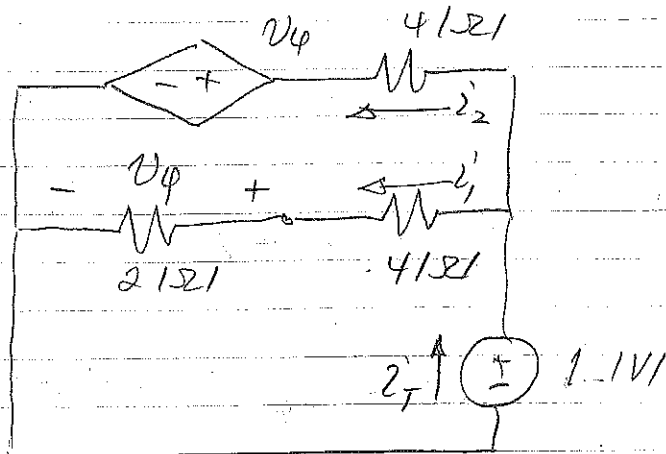 vφ 4 |Ω|
- +
i₂
- vφ + i₁
2 |Ω| 4 |Ω|
i_T + - 1 |V|